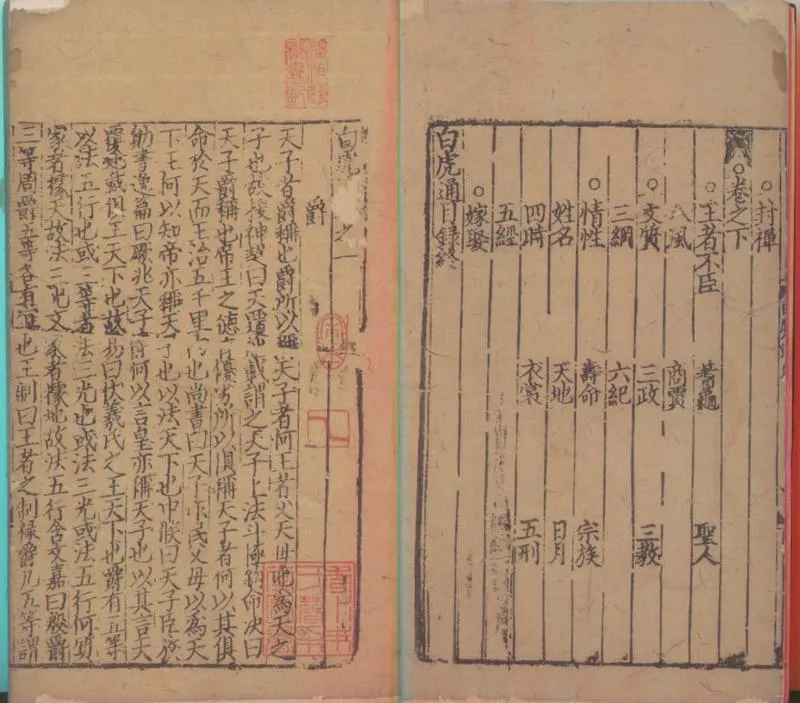 封禪
卷之下
王者不臣 蓍龜 聖人
八風 商賈
文質 三政 三教
三綱 六紀
情性 壽命 宗族
姓名 天地 日月
四時 衣裳 五刑
五經
嫁娶
白虎通目錄終
白虎 之一
爵
天子者爵稱也爵所以稱天子者何王者父天母地為天之
子也故援神契曰天覆地載謂之天子上法斗極鉤命決曰
天子爵稱也帝王之德有優劣所以俱稱天子者何以其俱
命於天而王治五千里內也尚書曰天子作民父母以為天
下王何以知帝亦稱天子也以法天下也中候曰天子臣放
勛書逸篇曰厥兆天子爵何以言皇亦稱天子也以其言天
覆地載俱王天下也故易曰伏羲氏之王天下也爵有五等
以法五行也或三等者法三光也或法三光或法五行何質
家者據天故法三光文家者據地故法五行含文嘉曰殷爵
三等周爵五等各有宜也王制曰王者之制祿爵凡五等謂